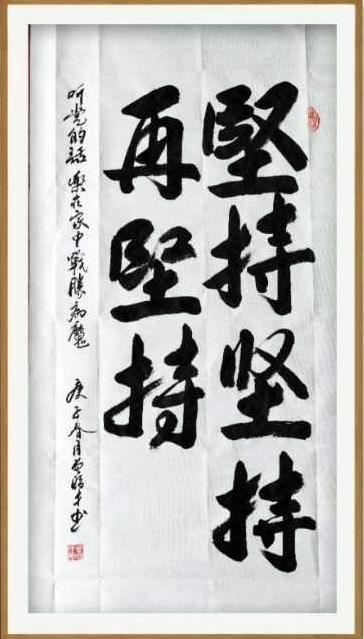 堅持坚持
再堅持
听党的話 樂在家中戰勝病魔 庚子春月